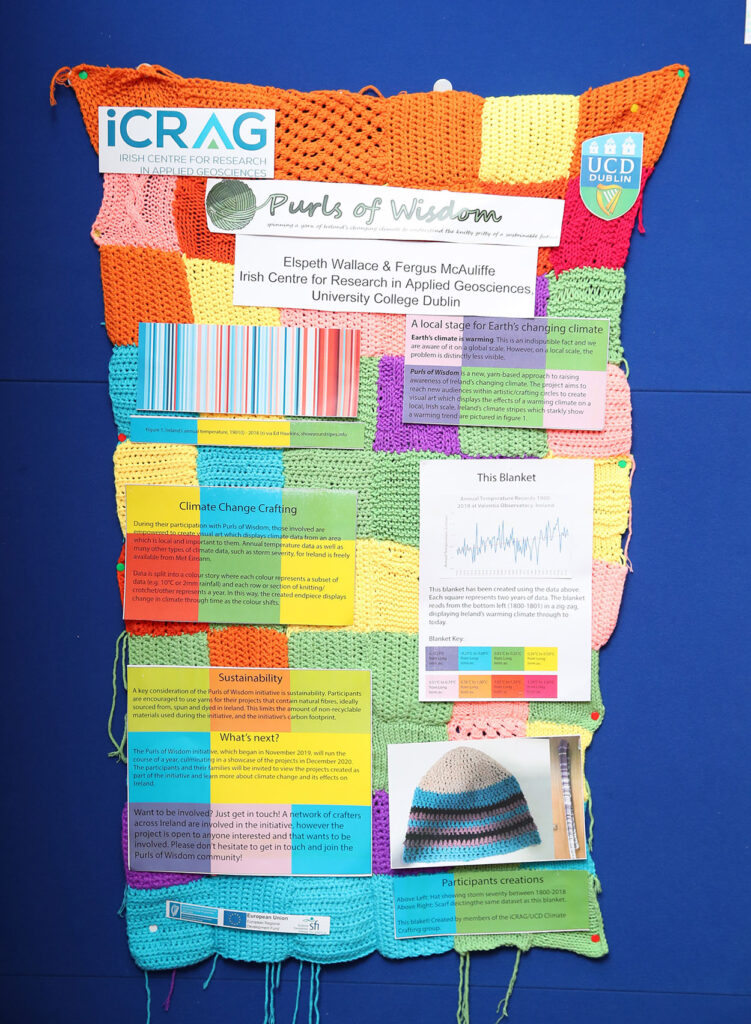 iCRAG
IRISH CENTRE FOR RESEARCH
IN APPLIED GEOSCIENCES
UCD
DUBLIN
Purls of Wisdom
spinning a yarn of Ireland's changing climate to understand the knitty gritty of a sustainable
Elspeth Wallace & Fergus McAuliffe
Irish Centre for Research in Applied Geosciences,
University College Dublin
Figure 1. Ireland's annual temperature, 1901 - 2018 via Ed Hawkins, showyourstripes.info
A local stage for Earth's changing climate
Earth's climate is warming. This is an indisputible fact and we
are aware of it on a global scale. However, on a local scale, the
problem is distinctly less visible.
Purls of Wisdom is a new, yarn-based approach to raising
awareness of Ireland's changing climate. The project aims to
reach new audiences within artistic/crafting circles to create
visual art which displays the effects of a warming climate on a
local, Irish scale. Ireland's climate stripes which starkly show
a warming trend are pictured in figure 1.
Climate Change Crafting
During their participation with Purls of Wisdom, those involved are
empowered to create visual art which displays climate data from an area
which is local and important to them. Annual temperature data as well as
many other types of climate data, such as storm severity, for Ireland is freely
available from Met Éireann.
Data is split into a colour story where each colour represents a subset of
data (e.g. 10°C or 2mm rainfall) and each row or section of knitting/
crotchet/other represents a year. In this way, the created endpiece displays
change in climate through time as the colour shifts.
This Blanket
Annual Temperature Records 1800-
2018 at Valentia Observatory, Ireland
This blanket has been created using the data above.
Each square represents two years of data. The blanket
reads from the bottom left (1800-1801) in a zig-zag,
displaying Ireland's warming climate through to
today.
Blanket Key:
Sustainability
A key consideration of the Purls of Wisdom initiative is sustainability. Participants
are encouraged to use yarns for their projects that contain natural fibres, ideally
sourced from, spun and dyed in Ireland. This limits the amount of non-recyclable
materials used during the initiative, and the initiative's carbon footprint.
What's next?
The Purls of Wisdom initiative, which began in November 2019, will run the
course of a year, culminating in a showcase of the projects in December 2020.
The participants and their families will be invited to view the projects created as
part of the initiative and learn more about climate change and its effects on
Ireland.
Want to be involved? Just get in touch! A network of crafters
across Ireland are involved in the initiative, however the
project is open to anyone interested and that wants to be
involved. Please don't hesitate to get in touch and join the
Purls of Wisdom community!
Participants creations
Above Left: Hat showing storm severity between 1800-2018
Above Right: Scarf deicting the same dataset as this blanket.
This blaket! Created by members of the iCRAG/UCD Climate
Crafting group.
European Union
European Regional
Development Fund
sfi